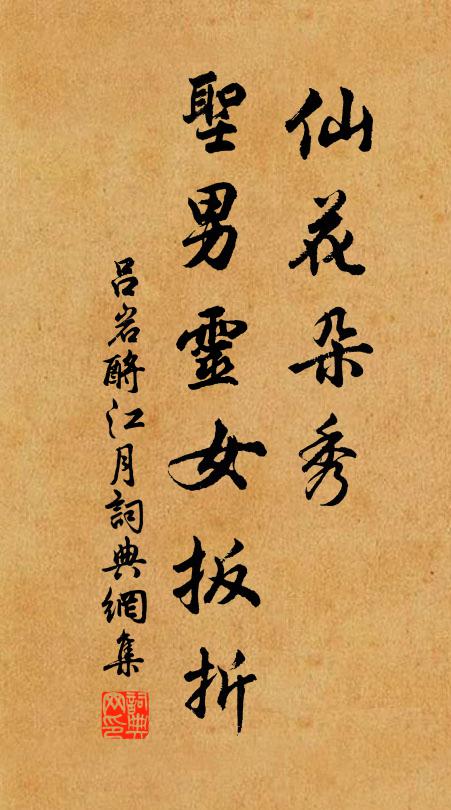 仙花朵秀
聖男靈女扳折
吕岩酹江月詞典網集
詞典网印